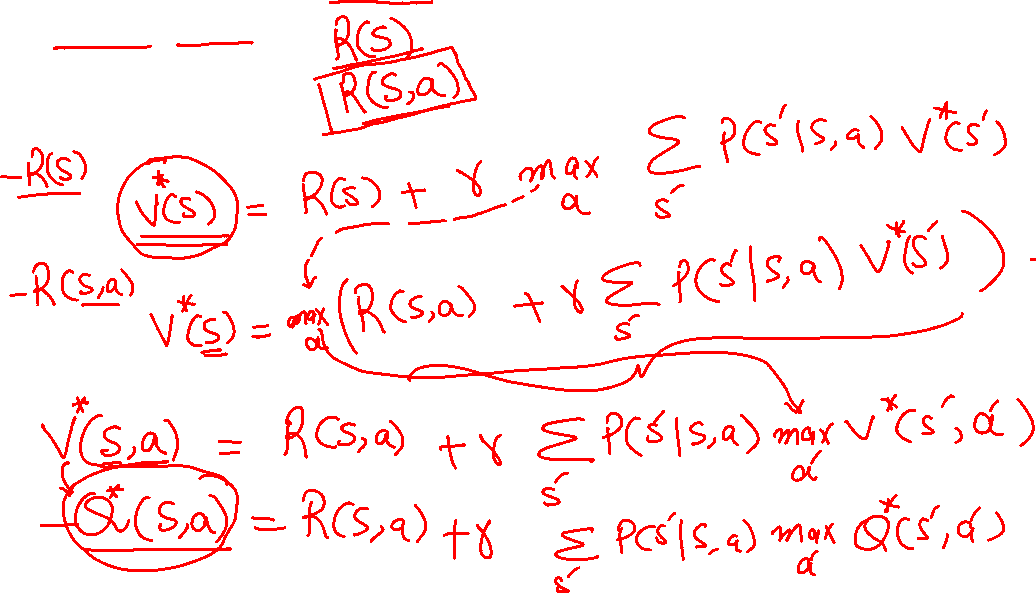 R(s)
R(s,a)
-R(s)
V*(s) = R(s) + γ max_a Σ_s' P(s'|s,a) V*(s')
-R(s,a)
V*(s) = max_a (R(s,a) + γ Σ_s' P(s'|s,a) V*(s'))
V*(s,a) = R(s,a) + γ Σ_s' P(s'|s,a) max_a' V*(s',a')
- Q*(s,a) = R(s,a) + γ Σ_s' P(s'|s,a) max_a' Q*(s',a')